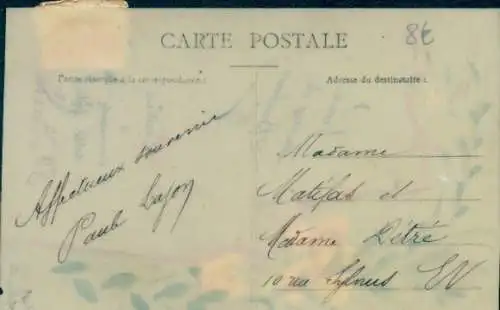 8€
CARTE POSTALE
Partie réservée à la correspondance
Adresse du destinataire
Affectueux souvenir
Paule Lafon
Madame
Matifas et
Madame Détré
10 rue EV